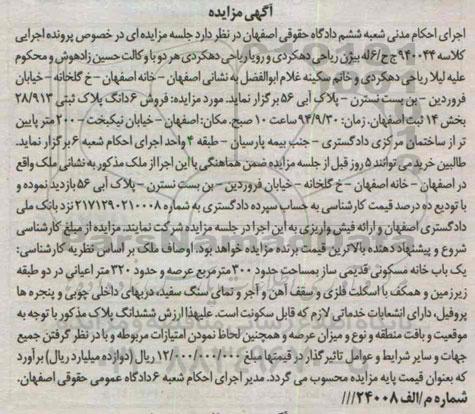 آگهی مزایده
اجرای احکام مدنی شعبه ششم دادگاه حقوقی اصفهان در نظر دارد جلسه مزایده ای در خصوص پرونده اجرایی
کلاسه ۹۴۰۰۴۴ ج ح/۶ له بیژن ریاحی دهکردی و رویا ریاحی دهکردی هر دو با وکالت حسین زادهوش و محکوم
علیه لیلا ریاحی دهکردی و خانم سکینه غلام ابوالفضل به نشانی اصفهان - خانه اصفهان - خ گلخانه - خیابان
فروردین - بن بست نسترن - پلاک آبی ۵۶ برگزار نماید. مورد مزایده: فروش ۶ دانگ پلاک ثبتی ۲۸/۹۱۳
بخش ۱۴ ثبت اصفهان. زمان: ۹۴/۹/۳۰ ساعت ۱۰ صبح. مکان: اصفهان - خیابان نیکبخت - ۲۰۰ متر پایین
تر از ساختمان مرکزی دادگستری - جنب بیمه پارسیان - طبقه ۴ واحد اجرای احکام شعبه ۶ برگزار نماید.
طالبین خرید می توانند ۵ روز قبل از جلسه مزایده ضمن هماهنگی با این اجرا از ملک مذکور به نشانی ملک واقع
در اصفهان - خانه اصفهان - خ گلخانه - خیابان فروردین - بن بست نسترن - پلاک آبی ۵۶ بازدید نموده و
با تودیع ده درصد قیمت کارشناسی به حساب سپرده دادگستری به شماره ۲۱۷۱۲۹۰۲۱۰۰۰۸ نزد بانک ملی
دادگستری اصفهان و ارائه فیش واریزی به این اجرا در جلسه مزایده شرکت نمایند. مزایده از مبلغ کارشناسی
شروع و پیشنهاد دهنده بالاترین قیمت برنده مزایده خواهد بود. اوصاف ملک بر اساس نظریه کارشناسی:
یک باب خانه مسکونی قدیمی ساز بمساحت حدود ۳۰۰ مترمربع عرصه و حدود ۳۲۰ متر اعیانی در دو طبقه
زیرزمین و همکف با اسکلت فلزی و سقف آهن و آجر و نمای سنگ سفید، دربهای داخلی چوبی و پنجره ها
پروفیل، دارای انشعابات خدماتی لازم که قابل سکونت است. علیهذا ارزش ششدانگ پلاک مذکور با توجه به
موقعیت و بافت منطقه و نوع و میزان عرصه و همچنین لحاظ نمودن امتیازات مربوطه و با در نظر گرفتن جمیع
جهات و سایر شرایط و عوامل تاثیرگذار در قیمتها مبلغ ۱۲/۰۰۰/۰۰۰/۰۰۰ ریال (دوازده میلیارد ریال) برآورد
که بعنوان قیمت پایه مزایده محسوب می گردد. مدیر اجرای احکام شعبه ۶ دادگاه عمومی حقوقی اصفهان.
شماره م/الف ۲۴۰۰۸///